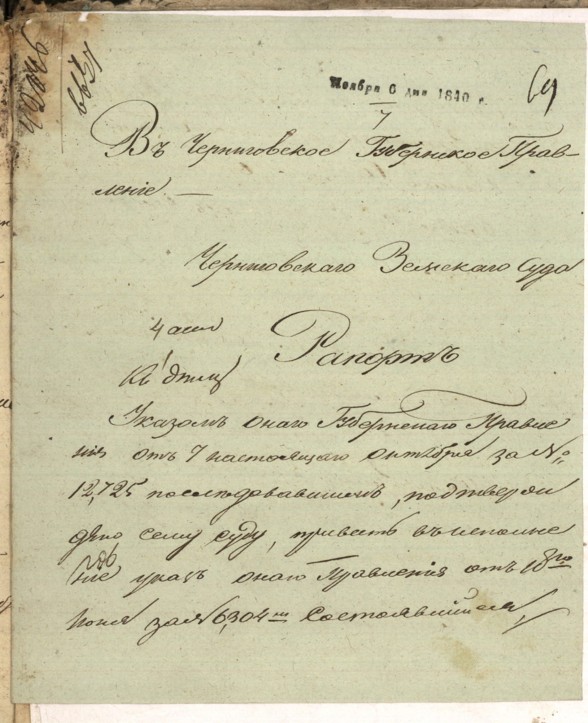 Ноября 6 дня 1840 г.
69
7
Въ Черниговское Губернское Прав-
леніе —
Черниговскаго Земскаго Суда
Рапортъ
Указомъ онаго Губернскаго Правле
нія отъ 7 настоящаго октября за №
12,725 последовавшимъ, подтверж
дено сему суду, привесть въ исполне
ніе указъ онаго Правленія отъ 18го
Іюня за № 6,304 состоявшійся,